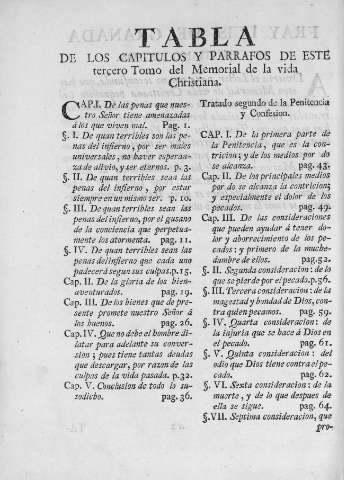 TABLA
DE LOS CAPITULOS Y PARRAFOS DE ESTE
tercero Tomo del Memorial de la vida
Christiana.
CAP.I. De las penas que nues-
tro Señor tiene amenazadas
á los que viven mal. Pag. 1.
§. I. De quan terribles son las pe-
nas del infierno, por ser males
universales, no haver esperan-
za de alivio, y ser eternos. p. 3.
§. II. De quan terribles sean las
penas del infierno, por estar
siempre en un mismo ser. p. 10.
§. III. De quan terribles sean las
penas del infierno, por el gusano
de la conciencia que perpetua-
mente los atormenta. pag. 11.
§. IV. De quan terribles sean las
penas del infierno que cada uno
padecerá segun sus culpas. p.15.
Cap. II. De la gloria de los bien-
aventurados. pag. 19.
Cap. III. De los bienes que de pre-
sente promete nuestro Señor á
los buenos. pag. 26.
Cap. IV. Que no debe el hombre di-
latar para adelante su conver-
sion ; pues tiene tantas deudas
que descargar, por razon de las
culpas de la vida pasada. p.32.
Cap. V. Conclusion de todo lo su-
sodicho. pag. 36.
Tratado segundo de la Penitencia
y Confesion.
CAP. I. De la primera parte de
la Penitencia, que es la con-
tricion; y de los medios por do
se alcanza. pag. 43.
Cap. II. De los principales medios
por do se alcanza la contricion;
y especialmente el dolor de los
pecados. pag. 49.
Cap. III. De las consideraciones
que pueden ayudar á tener do-
lor y aborrecimiento de los pe-
cados: y primero de la muche-
dumbre de ellos. pag.52.
§. II. Segunda consideracion: de lo
que se pierde por el pecado. p.56.
§. III. Tercera consideracion: de la
magestad y bondad de Dios, con-
tra quien pecamos. pag. 59.
§. IV. Quarta consideracion: de
la injuria que se hace á Dios en
el pecado. pag. 61.
§. V. Quinta consideracion: del
odio que Dios tiene contra el pe-
cado. pag. 62.
§. VI. Sexta consideracion: de la
muerte, y de lo que despues de
ella se sigue. pag. 64.
§.VII. Septima consideracion, que
pro-